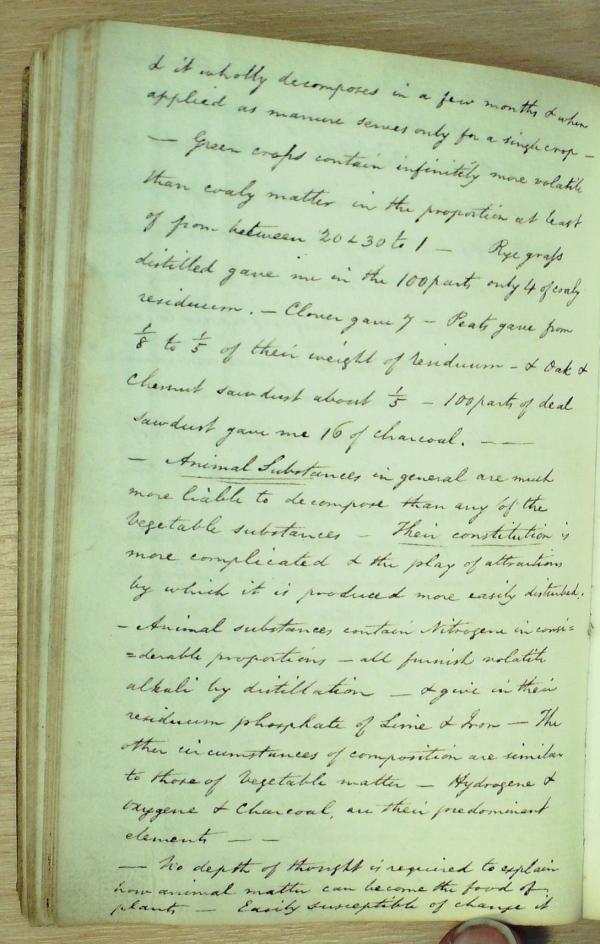 & it wholly decomposes in a few months & when
applied as manure serves only for a single crop –
— Green crops contain infinitely more volatile
than coaly matter in the proportion at least
of from between 20 & 30 to 1 — Rye grass
distilled gave me in the 100 parts only 4 of coaly
residuum. – Clover gave 7 – Peats gave from
1/8 to 1/5 of their weight of residuum – & Oak &
Chesnut sawdust about 1/5 – 100 parts of deal
sawdust gave me 16 of charcoal. — —
— Animal Substances in general are much
more liable to decompose than any of the
Vegetable substances – Their constitution is
more complicated & the play of attractions
by which it is produced more easily disturbed.
– Animal substances contain Nitrogene in consi=
=derable proportions – all furnish volatile
alkali by distillation — & give in their
residuum phosphate of Lime & Iron — The
other circumstances of composition are similar
to those of Vegetable matter — Hydrogene &
Oxygene & Charcoal, are their predominent
elements — —
— No depth of thought is required to explain
how animal matter can become the food of
plants — Easily susceptible of change it